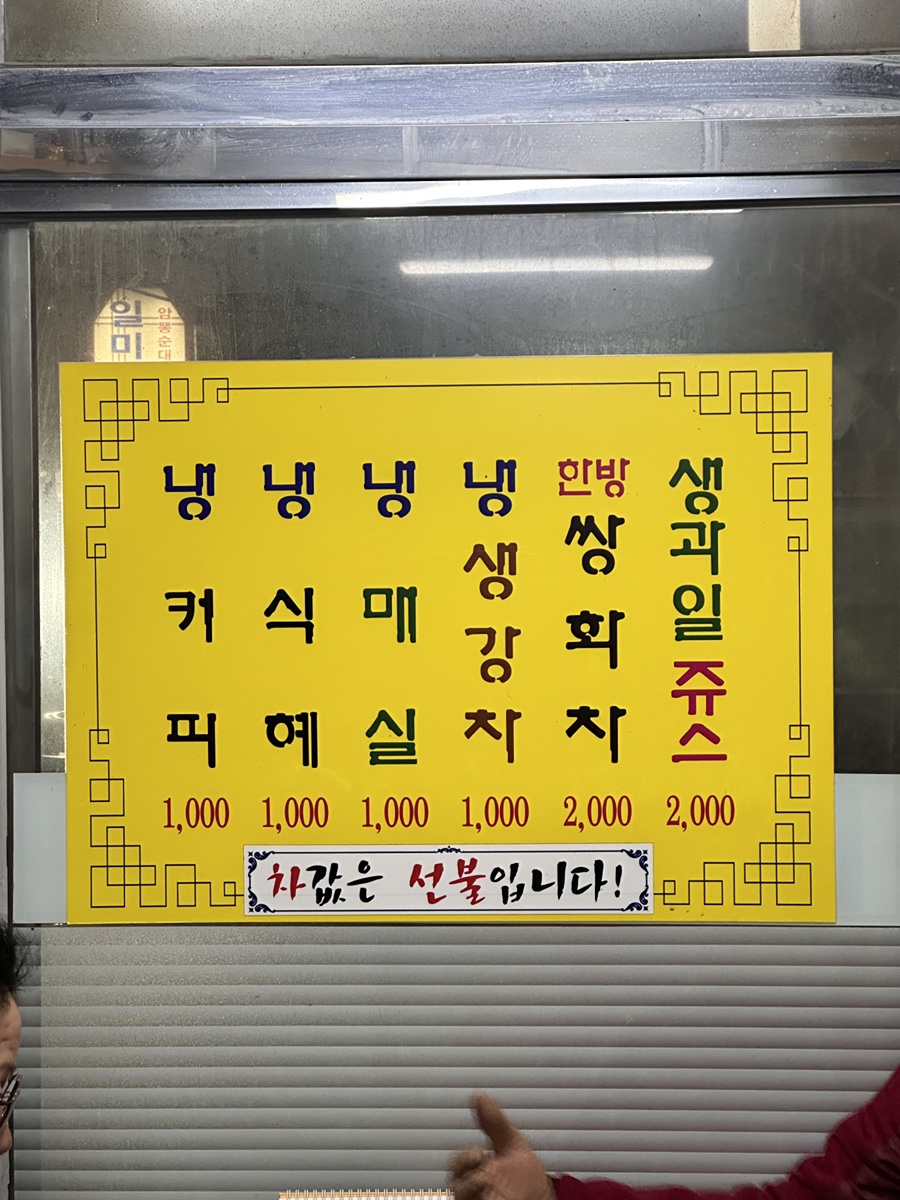 일미
암뽕순대
냉커피
1,000
냉식혜
1,000
냉매실
1,000
냉생강차
1,000
한방
쌍화차
2,000
생과일쥬스
2,000
차값은 선불입니다!